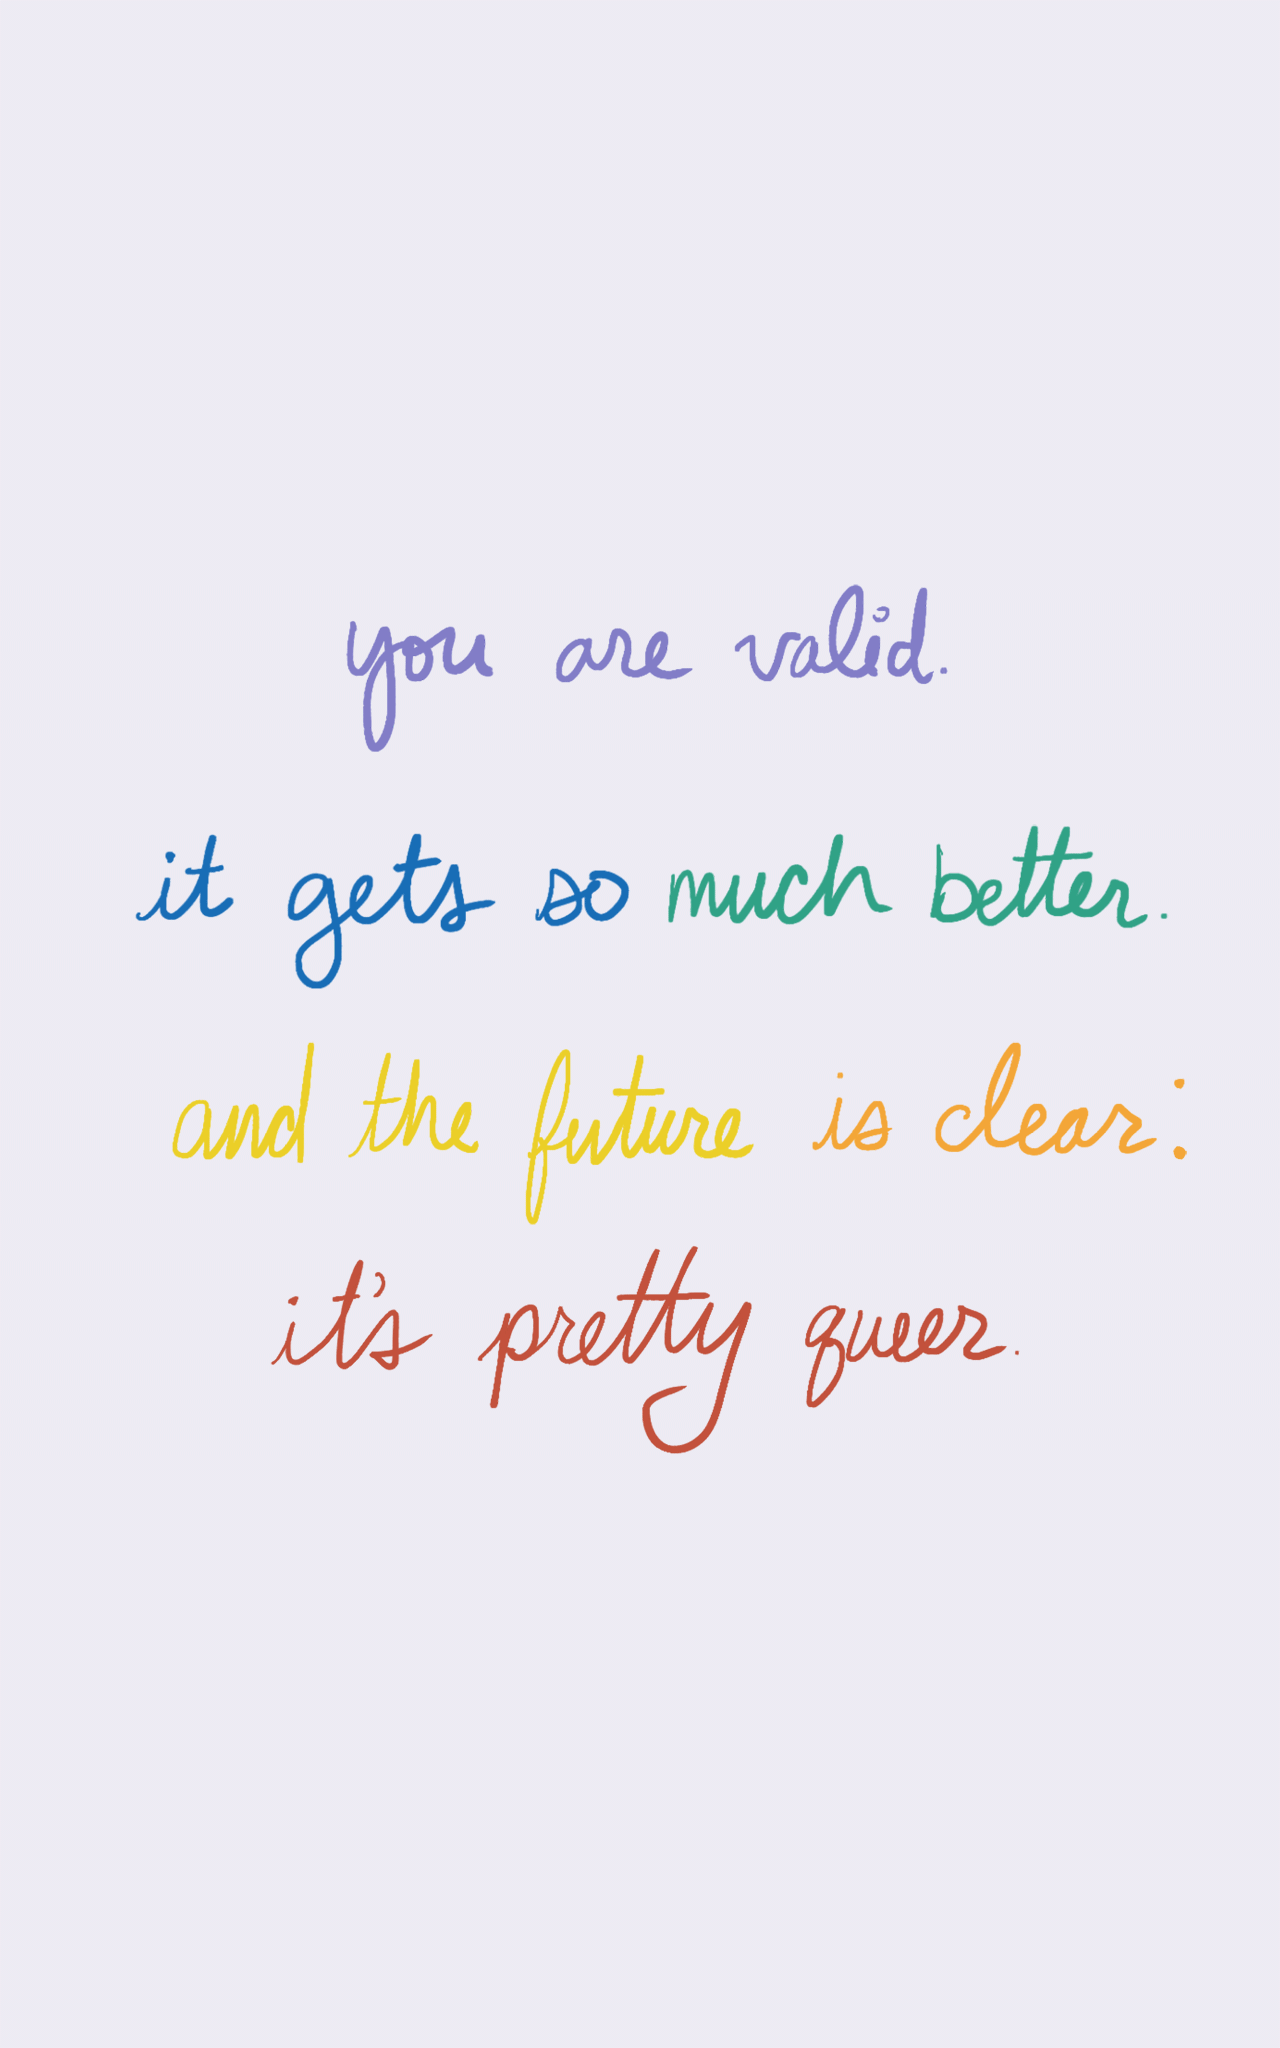 you are valid.
it gets so much better.
and the future is clear:
it's pretty queer.